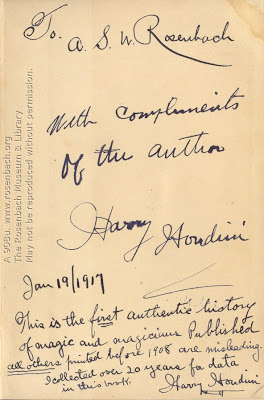 To. A. S. W. Rosenbach
With compliments
of the author
Harry Houdini
Jan 19/1917
This is the first authentic history
of magic and magicians Published
all others printed before 1908 are misleading.
I collected over 20 years for data
in this book.
Harry Houdini
A 908u www.rosenbach.org
The Rosenbach Museum & Library
May not be reproduced without permission.